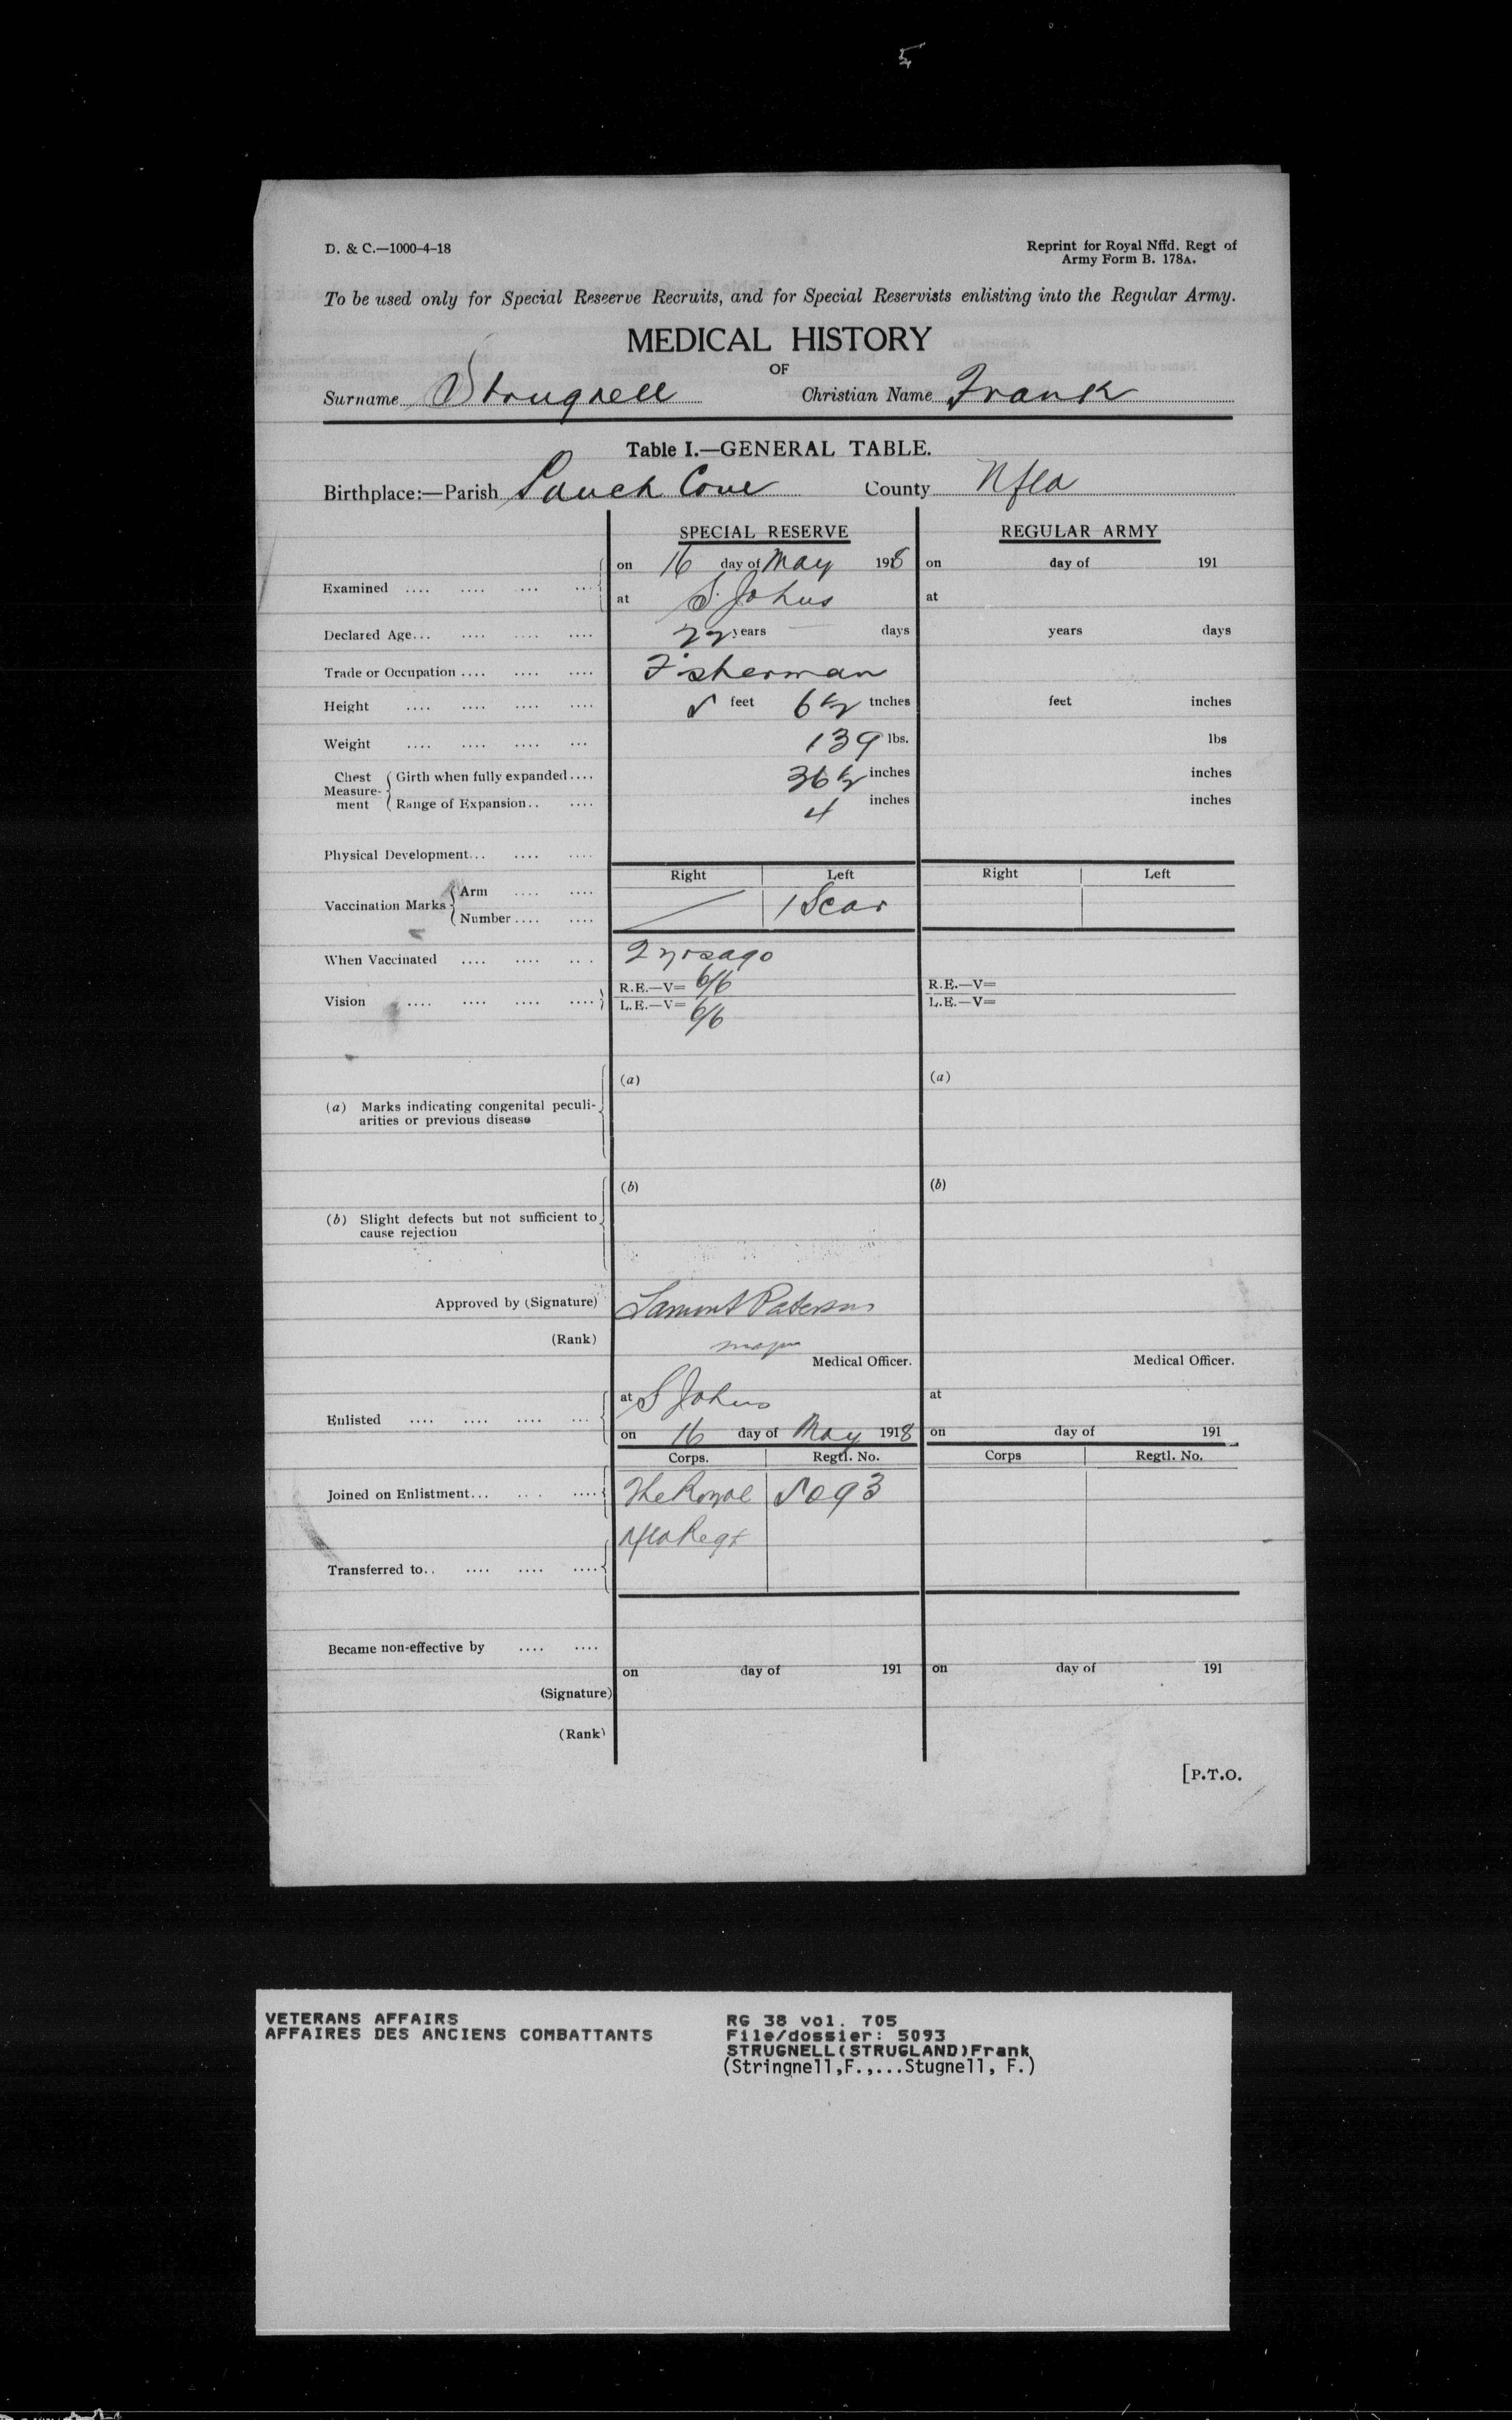 5
D. & C.—1000-4-18
Reprint for Royal Nffd. Regt of
Army Form B. 178A.
To be used only for Special Reserve Recruits, and for Special Reservists enlisting into the Regular Army.
MEDICAL HISTORY
OF
Surname Strugnell Christian Name Frank
Table I.—GENERAL TABLE.
Birthplace:—Parish Pouch Cove County Nfld
SPECIAL RESERVE REGULAR ARMY
on 16 day of May 1918 on day of 191
Examined .... .... .... ...
at S. Johns at
Declared Age... .... .... .... 22 years — days years days
Trade or Occupation .... .... .... Fisherman
Height .... .... .... .... 5 feet 6½ tnches feet inches
Weight .... .... .... ... 139 lbs. lbs
Chest Measurement Girth when fully expanded .... 36½ inches inches
Range of Expansion.. .... 4 inches inches
Physical Development... .... ....
Right Left Right Left
Vaccination Marks Arm .... .... 1 Scar
Number .... ....
When Vaccinated .... .... ... 2 yrs ago
Vision .... .... .... .... R.E.—V= 6/6 R.E.—V=
L.E.—V= 6/6 L.E.—V=
(a) (a)
(a) Marks indicating congenital peculi-
arities or previous disease
(b) (b)
(b) Slight defects but not sufficient to
cause rejection
Approved by (Signature) Lamont Paterson
(Rank) major
Medical Officer. Medical Officer.
at S Johns at
Enlisted .... .... .... ...
on 16 day of May 1918 on day of 191
Corps. Regtl. No. Corps Regtl. No.
Joined on Enlistment... ... .... The Royal 5093
Nfld Regt
Transferred to.. .... .... ....
Became non-effective by .... ....
on day of 191 on day of 191
(Signature)
(Rank)
[P.T.O.
VETERANS AFFAIRS
AFFAIRES DES ANCIENS COMBATTANTS
RG 38 vol. 705
File/dossier: 5093
STRUGNELL(STRUGLAND)Frank
(Stringnell,F.,...Stugnell, F.)